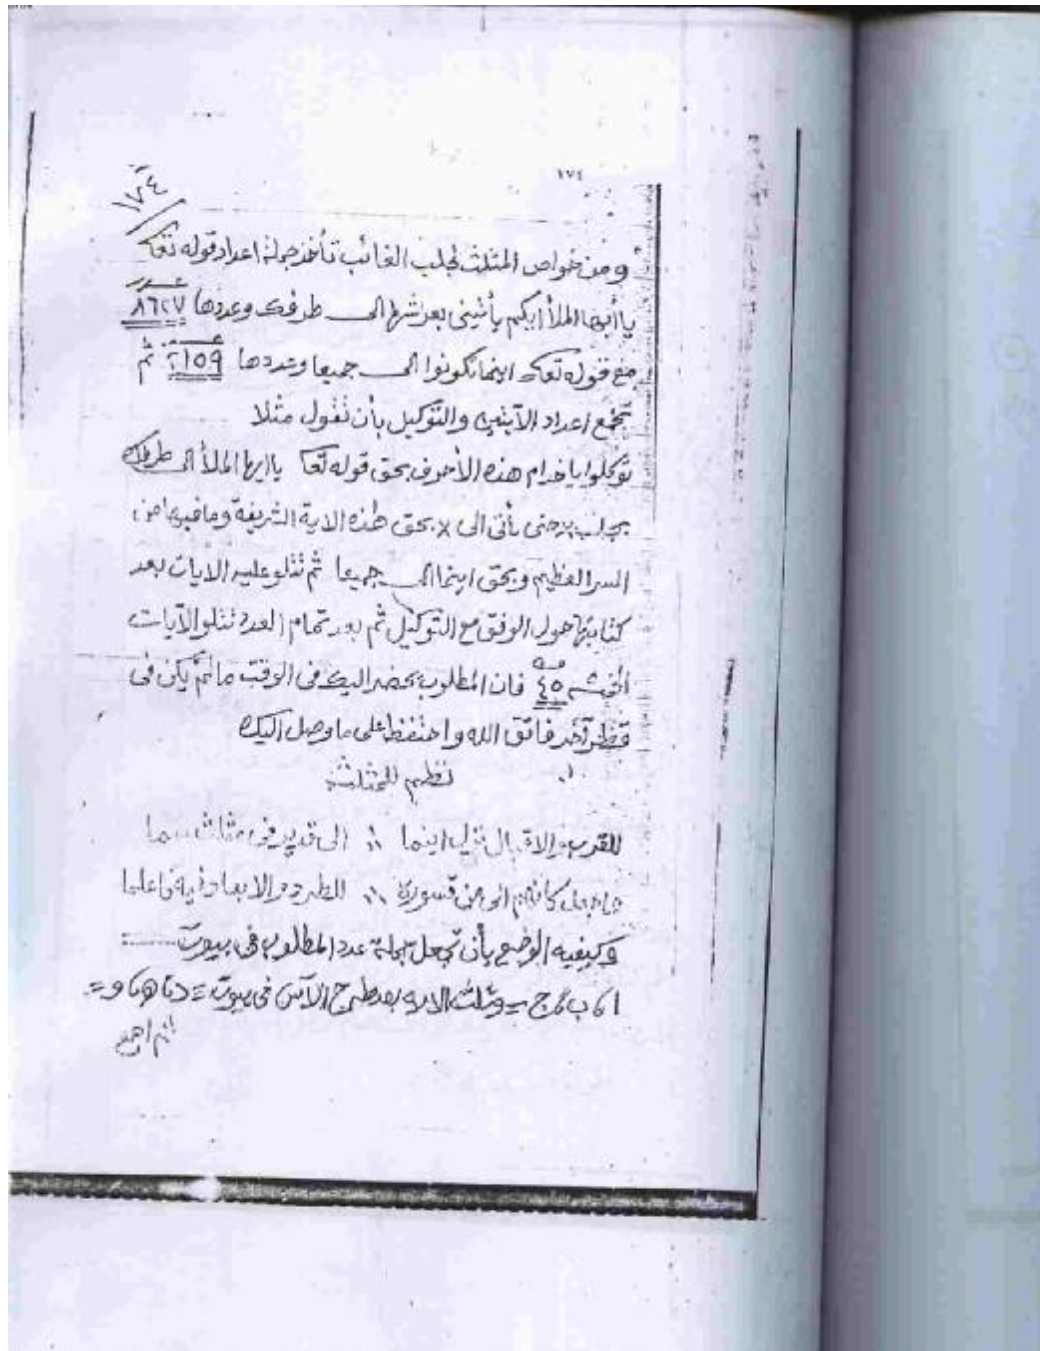 ١٧٤
١٧٤
ومن خواص المثلث لجلب الغائب تأخذ جملة اعداد قوله تعا
يا أيها الملأ أيكم يأتيني بعرشها الى طرفك وعددها ٨٦٢٧
مع قوله تعا اينما تكونوا الى جميعا وعددها ٢١٥٩ ثم
تجمع اعداد الآيتين والتوكيل بأن تقول مثلا
توكلوا يا خدام هذه الأحرف بحق قوله تعا يا ايها الملأ الى طرفك
بجلب حتى يأتى الى x بحق هذه الاية الشريفة وما فيها من
السر العظيم وبحق اينما الى جميعا ثم تتلو عليه الايات بعد
كتابتها حول الوفق مع التوكيل ثم بعد تمام العدد تتلو الآيات
٤٥ فان المطلوب يحضر اليك فى الوقت ما لم يكن فى
قطر آخر فاتق الله واحتفظ على ما وصل اليك
نظم للمثلث
للقرب والاقبال اينما ؞ الى قدير فى مثلث سما
كأنهم الى من قسورة ؞ للطرد والابعاد فاعلما
وكيفيه الوضع بأن تجعل جملة عدد المطلوب فى بيوت
ا ب ج = وثلث بعد طرح الآس فى بيوت = د ه و =